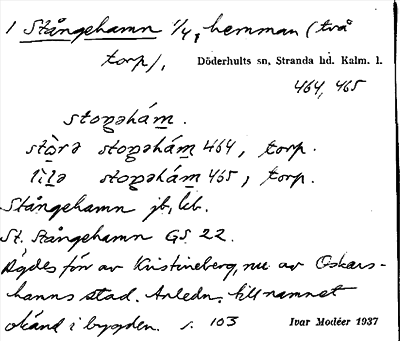 1 Stångehamn 1/4, hemman (två
torp),
Döderhults sn, Stranda hd. Kalm. l.
464, 465
stoŋəhám.
stòrə stoŋəhám 464, torp.
lìlə stoŋəhám 465, torp.
Stångehamn jb, kb.
St. Stångehamn GS 22.
Ägdes förr av Kristineberg, nu av Oskars-
hamns stad. Anledn. till namnet
okänd i bygden. s. 103
Ivar Modéer 1937